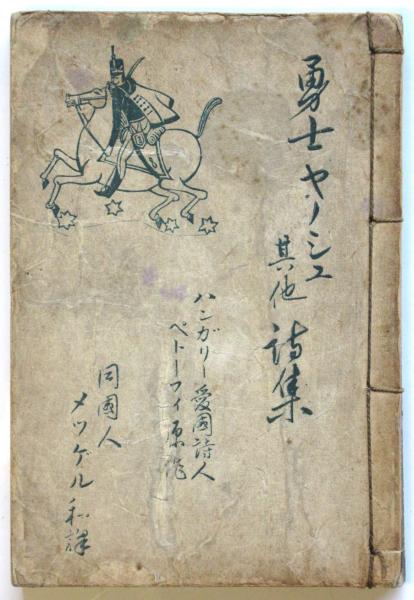 勇士ヤーノシュ
其他
詩集
ハンガリー愛国詩人
ペトーフィ原作
同國人
メツゲル和譯